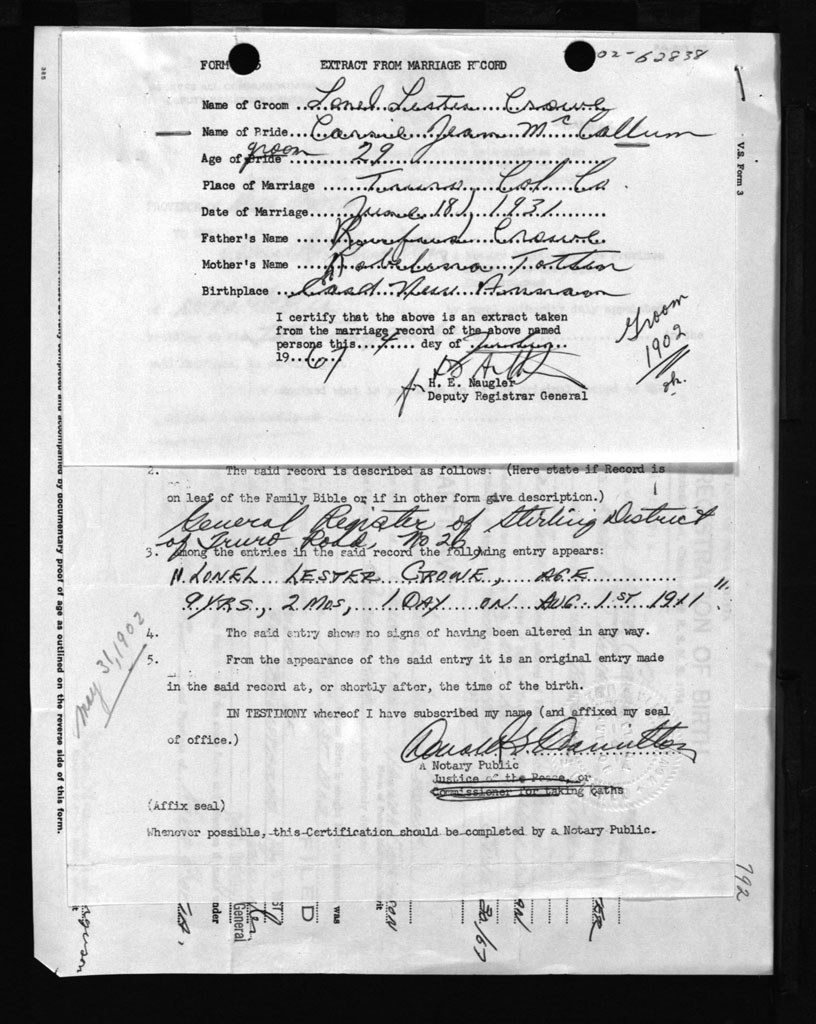 02-62838
FORM EXTRACT FROM MARRIAGE RECORD
Name of Groom Lonel Lester Crowe
Name of Bride Carrie Jean McCallum
groom
Age of Bride 29
Place of Marriage Truro, Col. Co.
Date of Marriage June 18, 1931
Father's Name Rufus Crowe
Mother's Name Robelena Tattrie
Birthplace East New Annan
I certify that the above is an extract taken
from the marriage record of the above named
persons this 4 day of
1967
for H. E. Naugler
Deputy Registrar General
Groom
1902
ok.
V.S. Form 3
2. The said record is described as follows: (Here state if Record is
on leaf of the Family Bible or if in other form give description.)
General Register of Stirling District
of Truro Road, No 26
3. Among the entries in the said record the following entry appears:
"LONEL LESTER CROWE, AGE
9 YRS., 2 MOS, 1 DAY ON AUG. 1ST 1911".
4. The said entry shows no signs of having been altered in any way.
May 31, 1902
5. From the appearance of the said entry it is an original entry made
in the said record at, or shortly after, the time of the birth.
IN TESTIMONY whereof I have subscribed my name (and affixed my seal
of office.)
A Notary Public
Justice of the Peace, or
Commissioner for taking oaths
(Affix seal)
Whenever possible, this Certification should be completed by a Notary Public.
completed and accompanied by documentary proof of age as outlined on the reverse side of this form.
REGISTRATION OF BIRTH
792
General
under
was
20/67